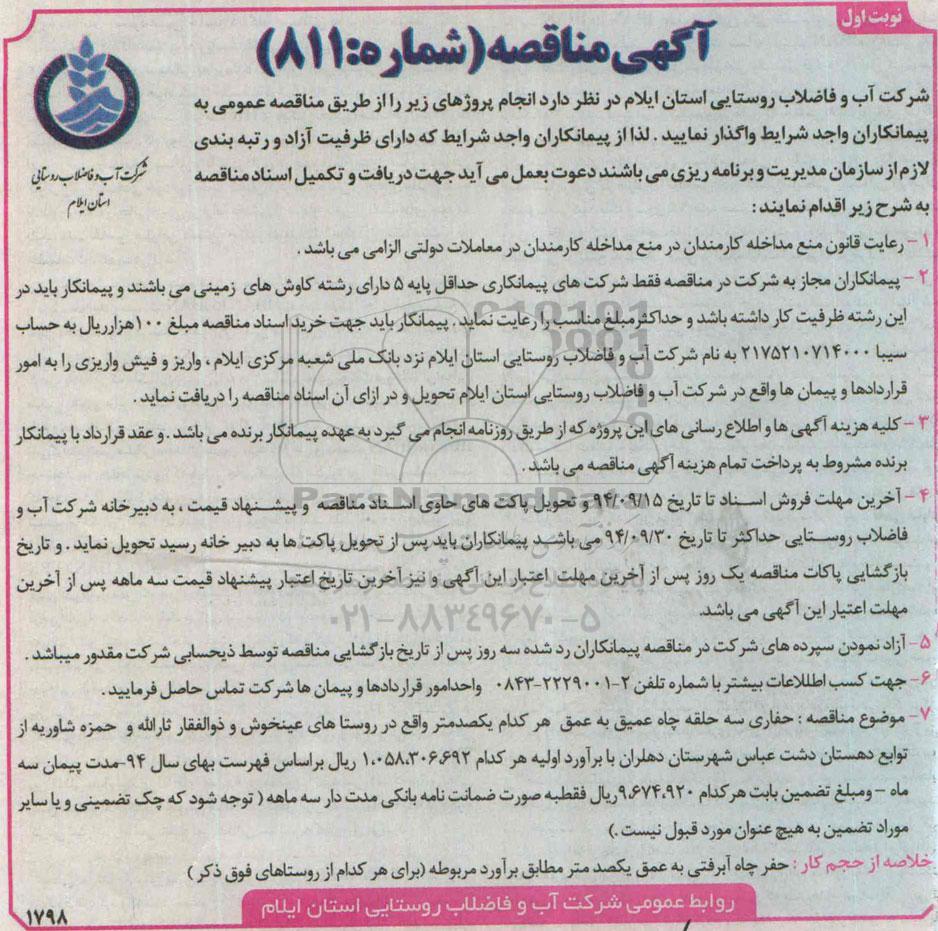 نوبت اول
آگهی مناقصه (شماره:۸۱۱)
شرکت آب و فاضلاب روستایی
استان ایلام
شرکت آب و فاضلاب روستایی استان ایلام در نظر دارد انجام پروژهای زیر را از طریق مناقصه عمومی به
پیمانکاران واجد شرایط واگذار نمایید . لذا از پیمانکاران واجد شرایط که دارای ظرفیت آزاد و رتبه بندی
لازم از سازمان مدیریت و برنامه ریزی می باشند دعوت بعمل می آید جهت دریافت و تکمیل اسناد مناقصه
به شرح زیر اقدام نمایند :
۱- رعایت قانون منع مداخله کارمندان در منع مداخله کارمندان در معاملات دولتی الزامی می باشد .
۲- پیمانکاران مجاز به شرکت در مناقصه فقط شرکت های پیمانکاری حداقل پایه ۵ دارای رشته کاوش های زمینی می باشند و پیمانکار باید در
این رشته ظرفیت کار داشته باشد و حداکثر مبلغ مناسب را رعایت نماید . پیمانکار باید جهت خرید اسناد مناقصه مبلغ ۱۰۰هزارریال به حساب
سیبا ۲۱۷۵۲۱۰۷۱۴۰۰۰ به نام شرکت آب و فاضلاب روستایی استان ایلام نزد بانک ملی شعبه مرکزی ایلام ، واریز و فیش واریزی را به امور
قراردادها و پیمان ها واقع در شرکت آب و فاضلاب روستایی استان ایلام تحویل و در ازای آن اسناد مناقصه را دریافت نماید .
۳- کلیه هزینه آگهی ها و اطلاع رسانی های این پروژه که از طریق روزنامه انجام می گیرد به عهده پیمانکار برنده می باشد . و عقد قرارداد با پیمانکار
برنده مشروط به پرداخت تمام هزینه آگهی مناقصه می باشد .
ParsNamadData
۴- آخرین مهلت فروش اسناد تا تاریخ ۹۴/۰۹/۱۵ و تحویل پاکت های حاوی اسناد مناقصه و پیشنهاد قیمت ، به دبیرخانه شرکت آب و
فاضلاب روستایی حداکثر تا تاریخ ۹۴/۰۹/۳۰ می باشد پیمانکاران باید پس از تحویل پاکت ها به دبیر خانه رسید تحویل نماید . و تاریخ
بازگشایی پاکات مناقصه یک روز پس از آخرین مهلت اعتبار این آگهی و نیز آخرین تاریخ اعتبار پیشنهاد قیمت سه ماهه پس از آخرین
مهلت اعتبار این آگهی می باشد.
۰۲۱-۸۸۳۴۹۶۷۰-۵
۵- آزاد نمودن سپرده های شرکت در مناقصه پیمانکاران رد شده سه روز پس از تاریخ بازگشایی مناقصه توسط ذیحسابی شرکت مقدور میباشد .
۶- جهت کسب اطللاعات بیشتر با شماره تلفن ۲-۲۲۲۹۰۰۱-۰۸۴۳ واحدامور قراردادها و پیمان ها شرکت تماس حاصل فرمایید .
۷- موضوع مناقصه : حفاری سه حلقه چاه عمیق به عمق هر کدام یکصدمتر واقع در روستا های عینخوش و ذوالفقار ثارالله و حمزه شاوریه از
توابع دهستان دشت عباس شهرستان دهلران با برآورد اولیه هر کدام ۱،۰۵۸،۳۰۶،۶۹۲ ریال براساس فهرست بهای سال ۹۴-مدت پیمان سه
ماه - ومبلغ تضمین بابت هرکدام ۹،۶۷۴،۹۲۰ریال فقطبه صورت ضمانت نامه بانکی مدت دار سه ماهه ( توجه شود که چک تضمینی و یا سایر
موراد تضمین به هیچ عنوان مورد قبول نیست .)
خلاصه از حجم کار : حفر چاه آبرفتی به عمق یکصد متر مطابق برآورد مربوطه (برای هر کدام از روستاهای فوق ذکر )
روابط عمومی شرکت آب و فاضلاب روستایی استان ایلام
۱۷۹۸